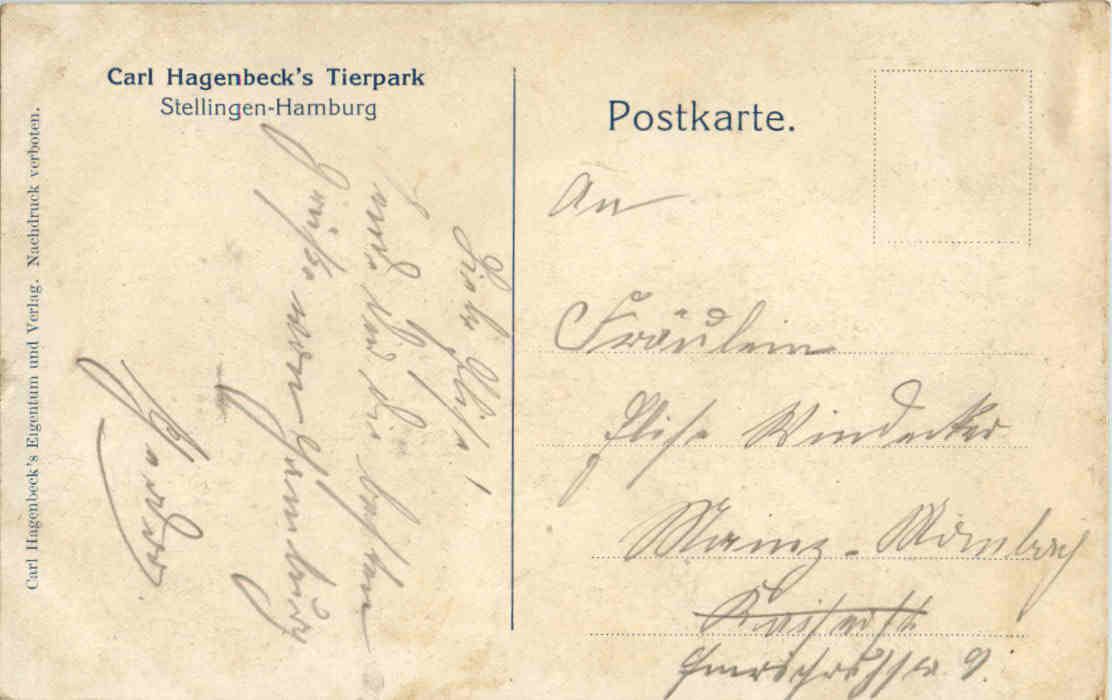 Carl Hagenbeck's Tierpark
Stellingen-Hamburg
Carl Hagenbeck's Eigentum und Verlag. Nachdruck verboten.
Liebe Elise!
sende Dir die besten
Grüße von Hamburg
Postkarte.
An
Fräulein
Elise Windecker
Mainz-Mombach